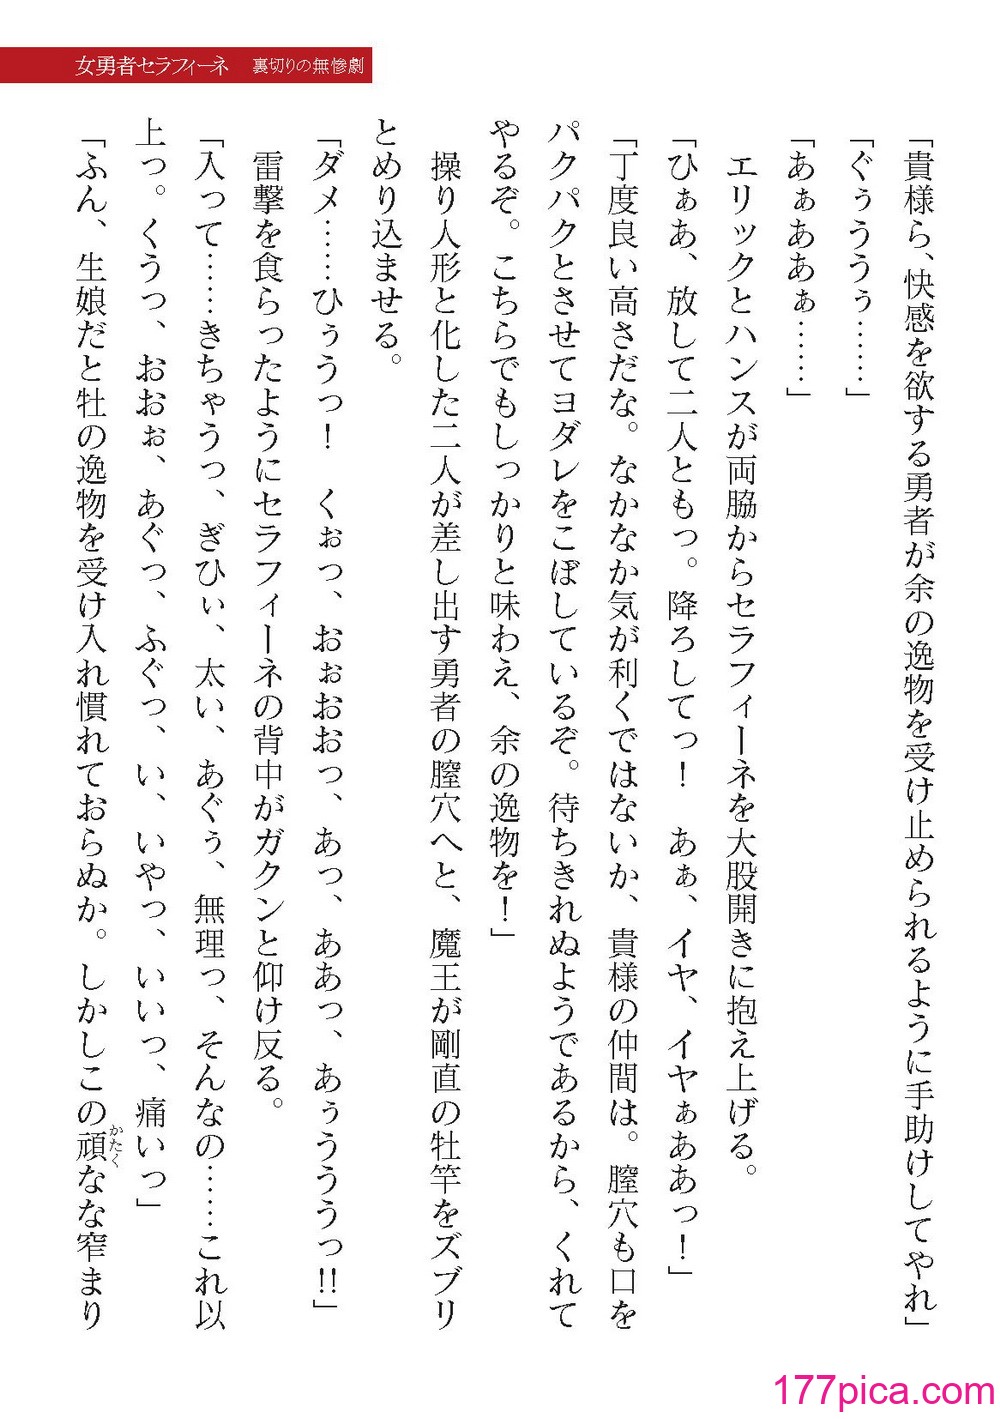 女勇者セラフィーネ 裏切りの無惨劇
「貴様ら、快感を欲する勇者が余の逸物を受け止められるように手助けしてやれ」
「ぐぅううぅ……」
「あぁああぁ……」
　エリックとハンスが両脇からセラフィーネを大股開きに抱え上げる。
「ひぁあ、放して二人ともっ。降ろしてっ！　あぁ、イヤ、イヤぁああっ！」
「丁度良い高さだな。なかなか気が利くではないか、貴様の仲間は。膣穴も口を
パクパクとさせてヨダレをこぼしているぞ。待ちきれぬようであるから、くれて
やるぞ。こちらでもしっかりと味わえ、余の逸物を！」
　操り人形と化した二人が差し出す勇者の膣穴へと、魔王が剛直の牡竿をズブリ
とめり込ませる。
「ダメ……ひぅうっ！　くぉっ、おぉおおっ、あっ、ああっ、あぅううっ!!」
　雷撃を食らったようにセラフィーネの背中がガクンと仰け反る。
「入って……きちゃうっ、ぎひぃ、太い、あぐぅ、無理っ、そんなの……これ以
上っ。くうっ、おおぉ、あぐっ、ふぐっ、い、いやっ、いいっ、痛いっ」
「ふん、生娘だと牡の逸物を受け入れ慣れておらぬか。しかしこの頑なな窄まり
かたく
177pica.com